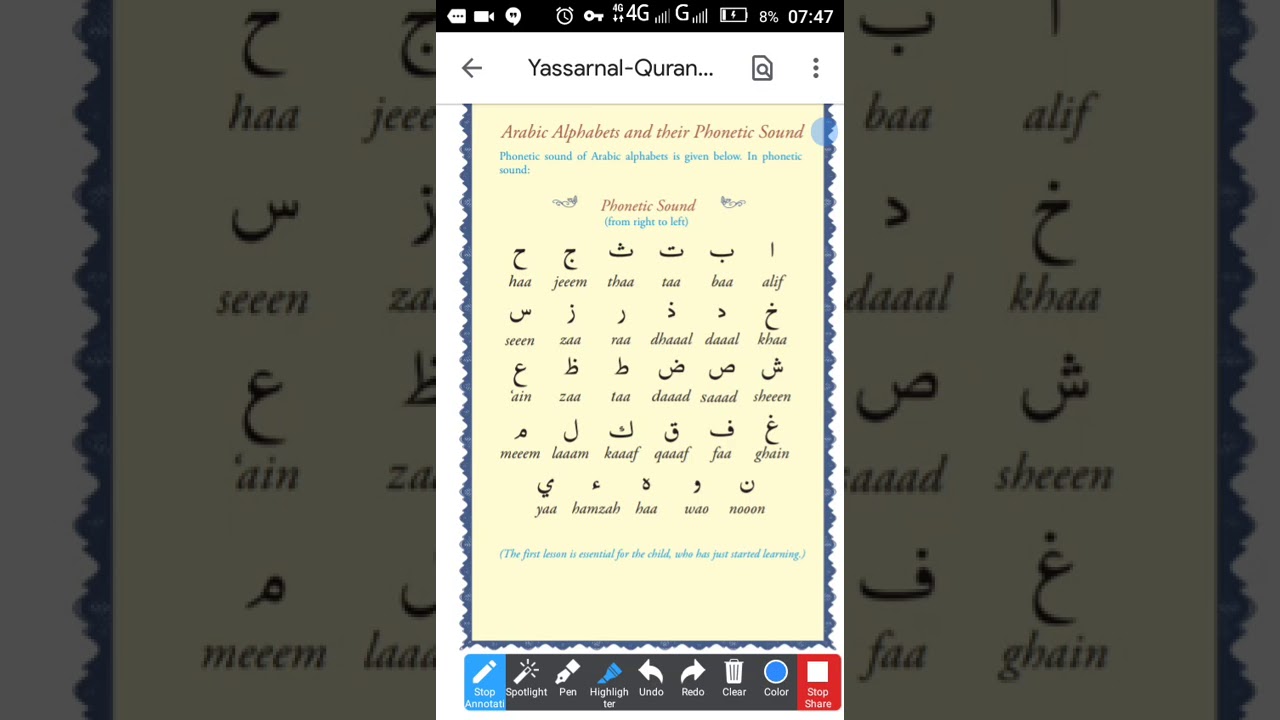 4G 4G G 8% 07:47
Yassarnal-Quran...
Arabic Alphabets and their Phonetic Sound
Phonetic sound of Arabic alphabets is given below. In phonetic
sound:
Phonetic Sound
(from right to left)
ا ب ت ث ج ح
haa jeeem thaa taa baa alif
خ د ذ ر ز س
seeen zaa raa dhaaal daaal khaa
ش ص ض ط ظ ع
‘ain zaa taa daaad saaad sheeen
غ ف ق ك ل م
meeem laaam kaaaf qaaaf faa ghain
ن و ه ء ي
yaa hamzah haa wao nooon
(The first lesson is essential for the child, who has just started learning.)
Stop Spotlight Pen Highligh Undo Redo Clear Color Stop
Annotati ter Share